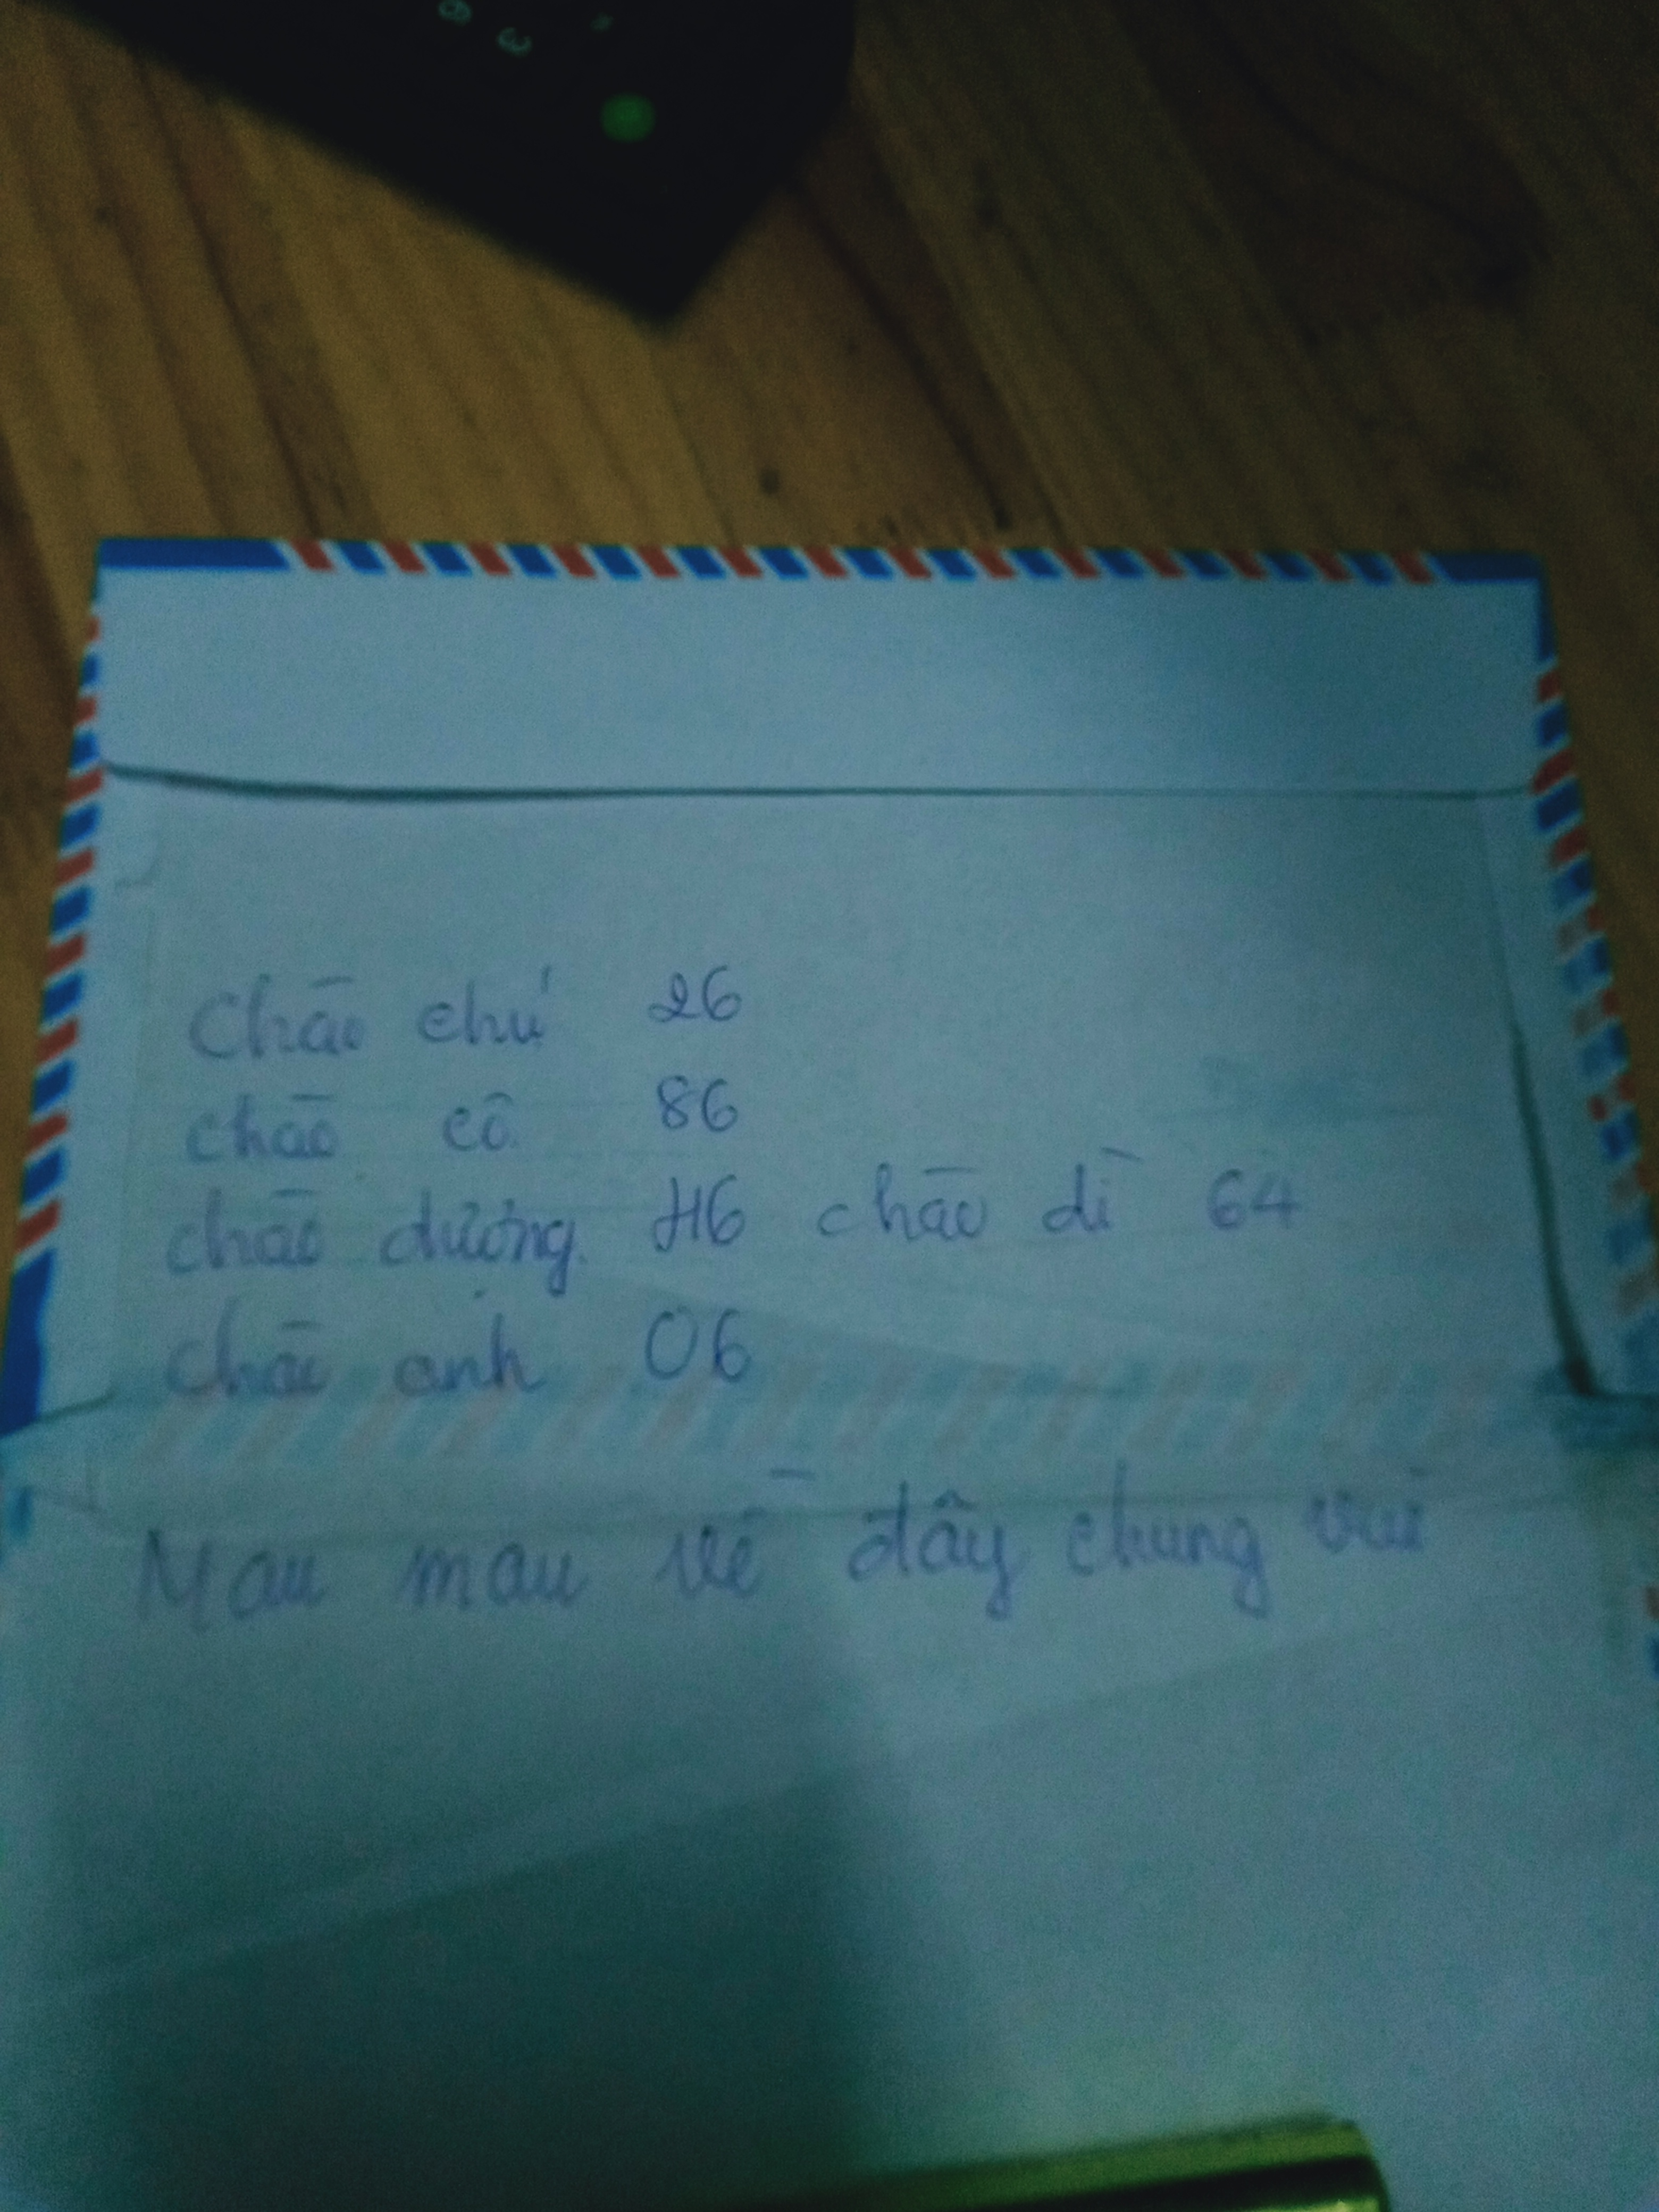 9 3
Chào chú 26
chào cô 86
chào dượng 46 chào dì 64
chào anh 06
Mau mau về đây chung vui